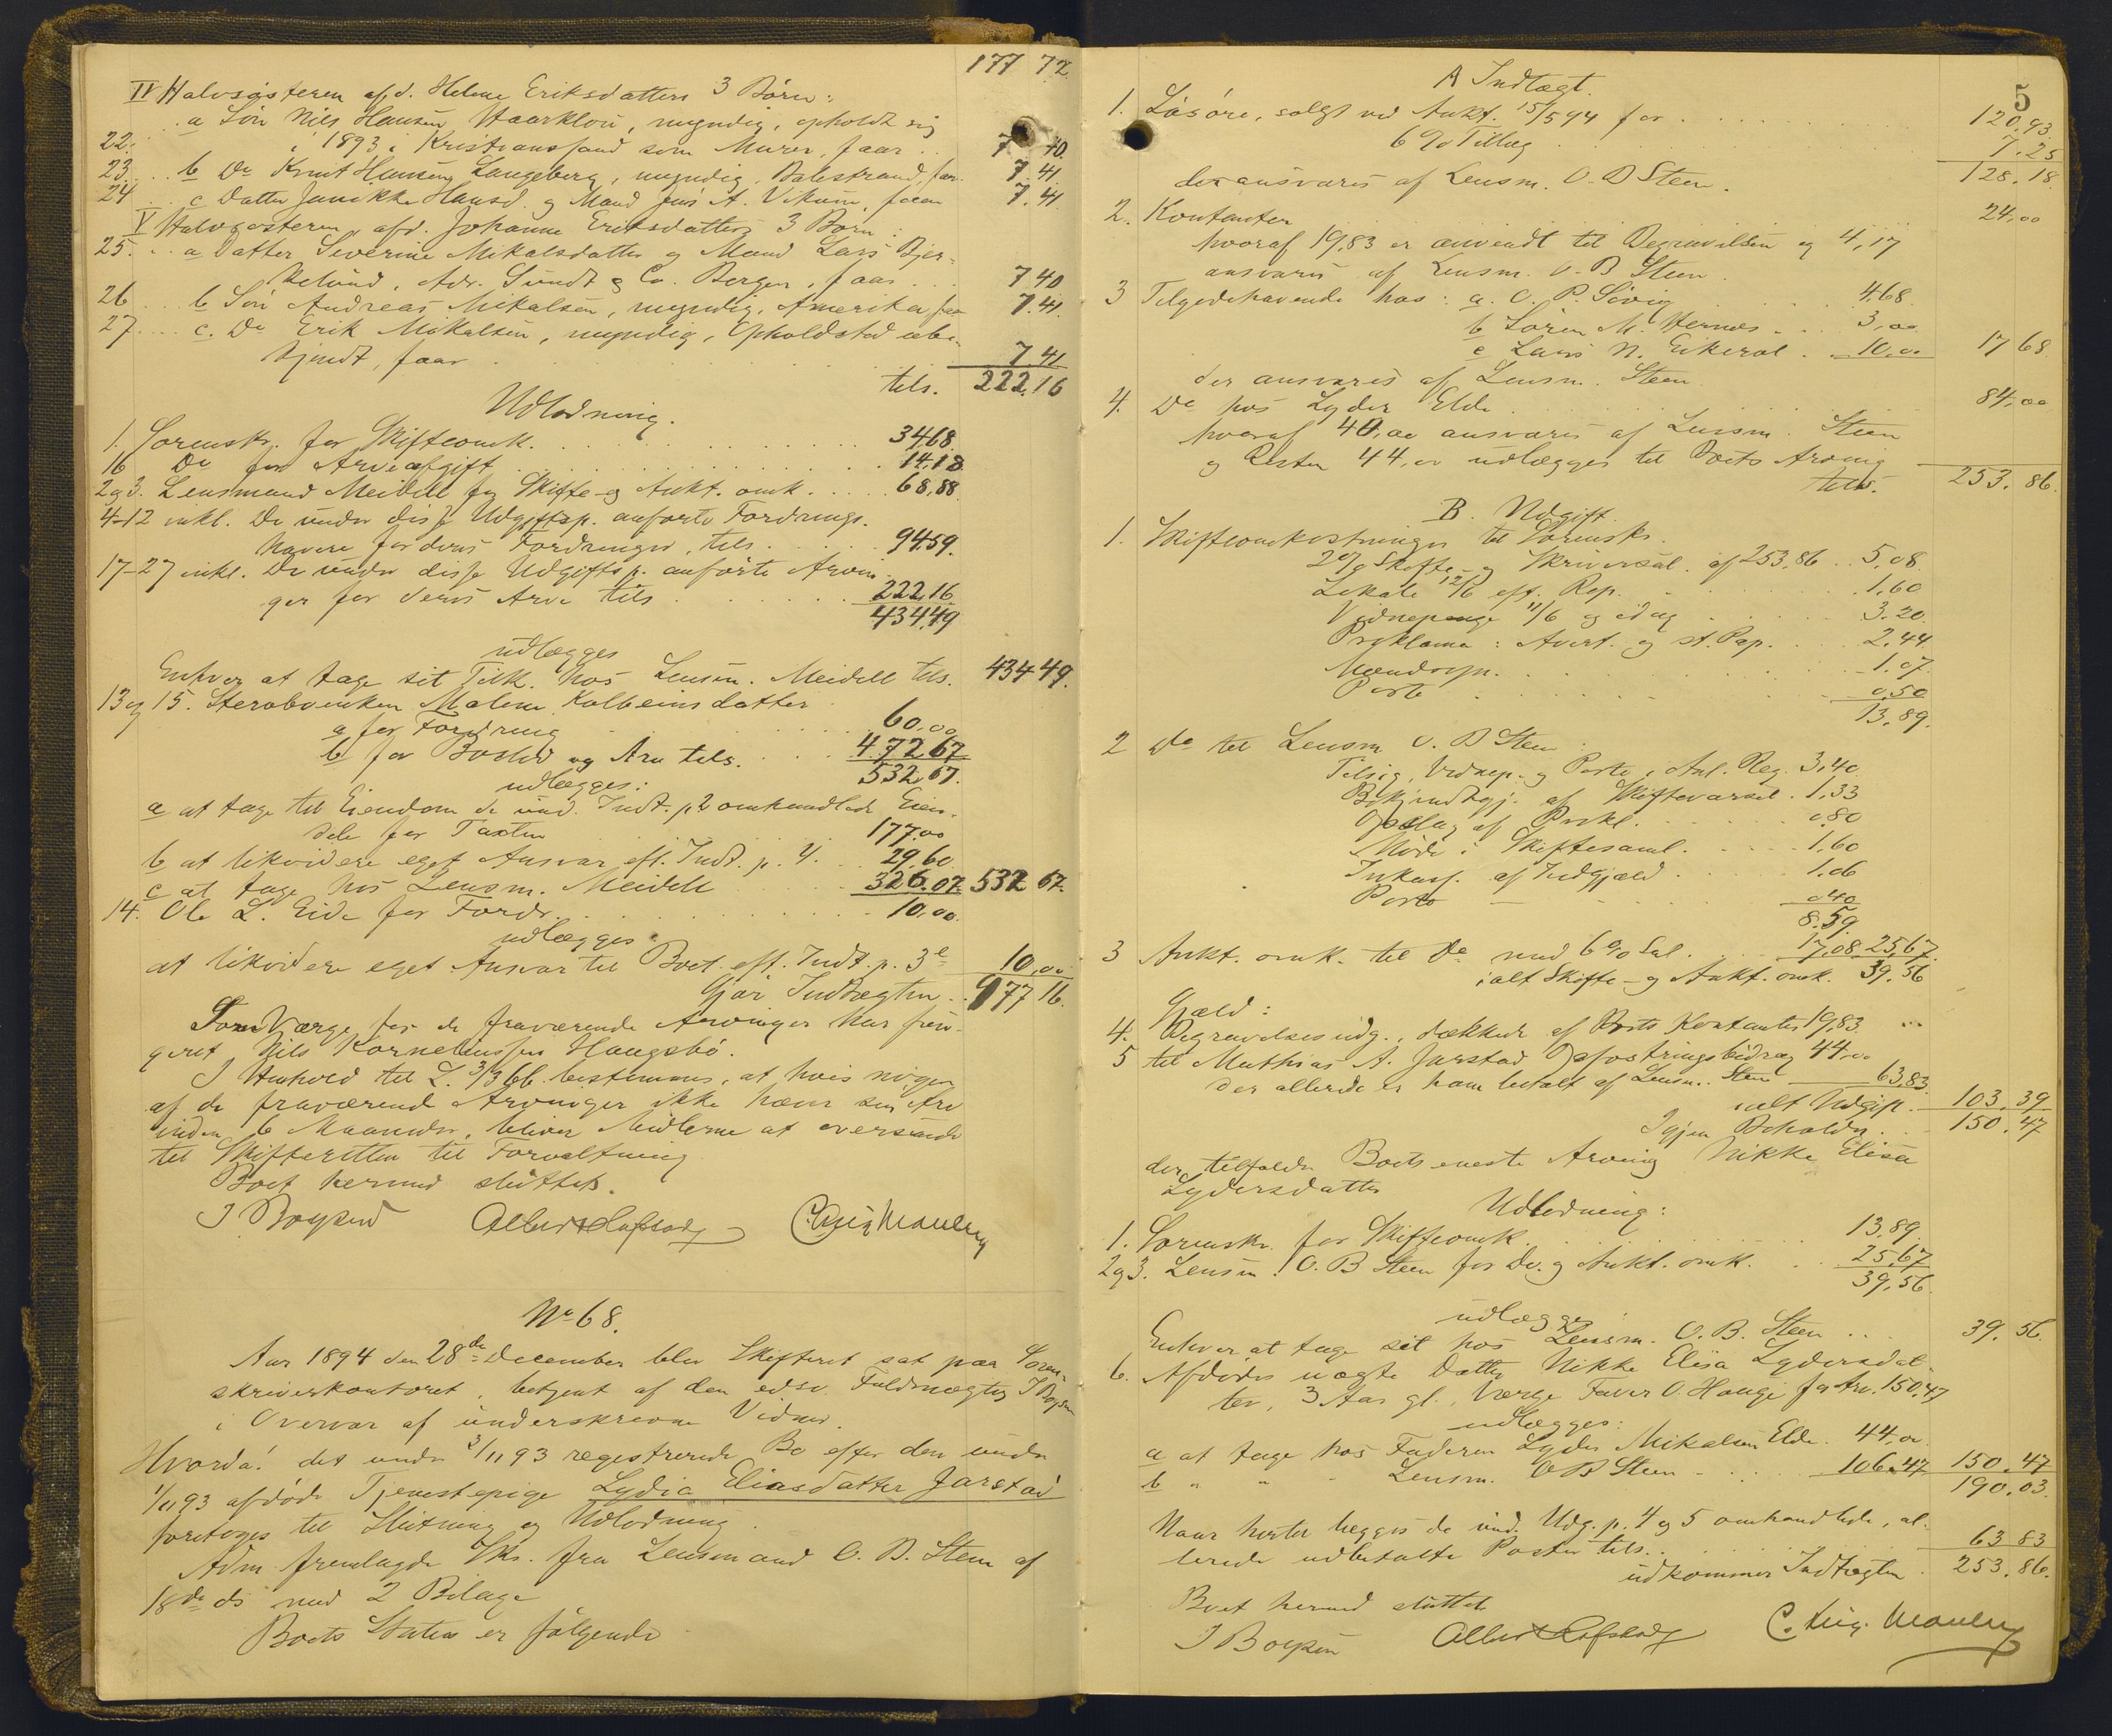 177 72
IV Halvsøsteren afd. Helene Eriksdatters 3 Børn:
a Søn Nils Hansen Haarklou, myndig, opholdt sig
22. i 1893 i Kristianssand som Murer, faar .. 7 40
23 .. b Do Knut Hansen Langeberg, myndig, Balestrand, faar 7.41
24 .. c Datter Janikke Hansd. og Mand Jens A. Vikum, faar 7.41
V Halvsøsteren afd. Johanne Eriksdatters 3 Børn:
25. .. a Datter Severine Mikalsdatter og Mand Lars Bjer-
kelund, Adr. Sundt & Co. Bergen, faar ... 7 40
26 .. b Søn Andreas Mikalsen, myndig, Amerika, faar 7.41.
27 .... c. Do Erik Mikalsen, myndig, Opholdsted ube-
kjendt, faar 7 41
tils. 222.16
Udlodning.
1. Sorenskr. for Skifteomk. 34,68
16 Do for Arveafgift 14,18
2 og 3. Lensmand Meidell for Skifte- og Aukt. omk. 68,88
4-12 inkl. De under disse Udgiftsp. anførte Fordrings-
havere for deres Fordringer, tils. 94.59.
17-27 inkl. De under disse Udgiftsp. anførte Arvin-
ger for deres Arv tils 222,16
434,49
udlægges
Enhver at tage sit Tilk. hos Lensm. Meidell tils. 434 49.
13 og 15. Sterbøenken Malene Kolbeinsdatter
a for Fordring 60,00
b for Boslod og Arv tils. 472,67
532,67.
udlægges:
a at tage til Eiendom de und. Indt. p. 2 omhandlede Eien-
dele for Taxten 177.00
b at likvidere eget Ansvar eft. Indt. p. 4. 29,60
c at tage hos Lensm. Meidell 326.07. 532 67.
14. Ole L. Eide for Fordr. 10.00.
udlægges
at likvidere eget Ansvar til Boet eft. Indt. p. 3 e 10,00
Gjør Indtægten .. 977 16.
Som Værge for de fraværende Arvinger har fun-
geret Nils Korneliussen Haugsbø.
I Henhold til L. 3/3 66 bestemmes, at hvis nogen
af de fraværende Arvinger ikke hæver sin Arv
inden 6 Maaneder, bliver Midlerne at oversende
til Skifteretten til Forvaltning
Boet hermed sluttet.
J Boysen Albert C. Aug. Mauley
No 68.
Aar 1894 den 28de December blev Skifteret sat paa Soren-
skriverkontoret, betjent af den edsv. Fuldmægtig J Boysen
i Overvær af underskrevne Vidner.
Hvorda! det under 3/11 93 registrerede Bo efter den under
1/11 93 afdøde Tjenestepige Lydia Eliasdatter Jarstad
foretoges til Slutning og Udlodning.
Adm. fremlagde Skr. fra Lensmand O. B. Steen af
18de ds med 2 Bilage
Boets Status er følgende
5
A Indtægt.
1. Løsøre, solgt ved Aukt. 15/5 94 for 120,93.
6% Tillæg 7.25
der ansvares af Lensm. O. B Steen. 128.18
2. Kontanter 24,00
hvoraf 19,83 er anvendt til Begravelsen og 4,17
ansvares af Lensm. O. B Steen.
3 Tilgodehavende hos: a. O. P. Søvig 4,68
b Søren M. Hernes 3,00
c Lars N. Eikerol 10,00 17 68
der ansvares af Lensm. Steen
4. Do hos Lyder Elde 84,00
hvoraf 40,00 ansvares af Lensm. Steen
og Resten 44,00 udlægges til Boets Arving
tils. 253.86.
B. Udgift.
1. Skifteomkostninger til Sorenskr.
2% Skifte- og Skriversal. af 253,86 .. 5,08.
Lokale 12/6 eft. Rep. 1,60
Vidnepenge 11/6 og idag 3.20.
Proklama: Avert. og st. Pap. 2,44
Mændsop. 1.07.
Porto 0,50
13,89.
2 Do til Lensm O. B Steen:
Tilsig. Vidnep. og Porto i Anl. Reg. 3,40
Bekjendtgj. af Skiftevarsel. 1,33
Opslag af Prokl. 0,80
Møde i Skiftesaml. 1,60
Inkass. af Indgjæld 1,06
Porto 0.40
8.59
3 Aukt. omk. til Do med 6% Sal. 17,08 25,67.
ialt Skifte- og Aukt. omk. 39,56
Gjæld:
4. Begravelsesudg., dækkede af Boets Kontanter 19,83.
5 til Mathias A. Jarstad Opfostringsbidrag 44,00
der allerede er ham betalt af Lensm. Steen 63,83
ialt Udgift 103.39
Igjen Beholdn. 150.47
der tilfalder Boets eneste Arving Nikka Elisa
Lydersdatter
Udlodning:
1. Sorenskr. for Skifteomk. 13,89
2 og 3. Lensm. O. B Steen for Do. og Aukt. omk. 25,67
39,56.
udlægges
Enhver at tage sit hos Lensm. O. B. Steen .. 39.56.
6. Afdødes uægte Datter Nikka Elisa Lydersdat-
ter, 3 Aar gl., Værge Faver O. Hauge for Arv. 150,47
udlægges:
a at tage hos Faderen Lyder Mikalsen Elde. 44,00
b " " Lensm. O B Steen 106.47 150.47
190.03.
Naar hertil lægges de und. Udg. p. 4 og 5 omhandlede, al-
lerede udbetalte Poster tils. 63 83
udkommer Indtægten 253.86.
Boet hermed sluttet
J Boysen Albert C. Aug. Mauley